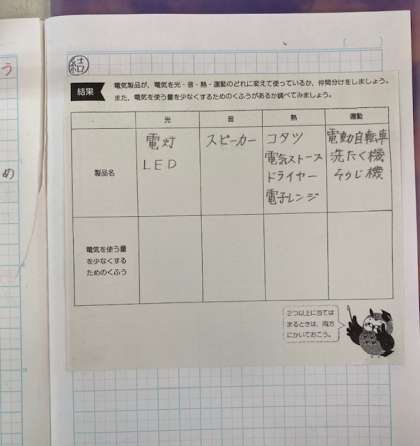 う
め
結
結果
電気製品が、電気を光・音・熱・運動のどれに変えて使っているか、仲間分けをしましょう。
また、電気を使う量を少なくするためのくふうがあるか調べてみましょう。
光 音 熱 運動
製品名
電灯
LED
スピーカー
コタツ
電気ストーブ
ドライヤー
電子レンジ
電動自転車
洗たく機
そうじ機
電気を使う量
を少なくする
ためのくふう
2つ以上に当ては
まるときは、両方
にかいておこう。